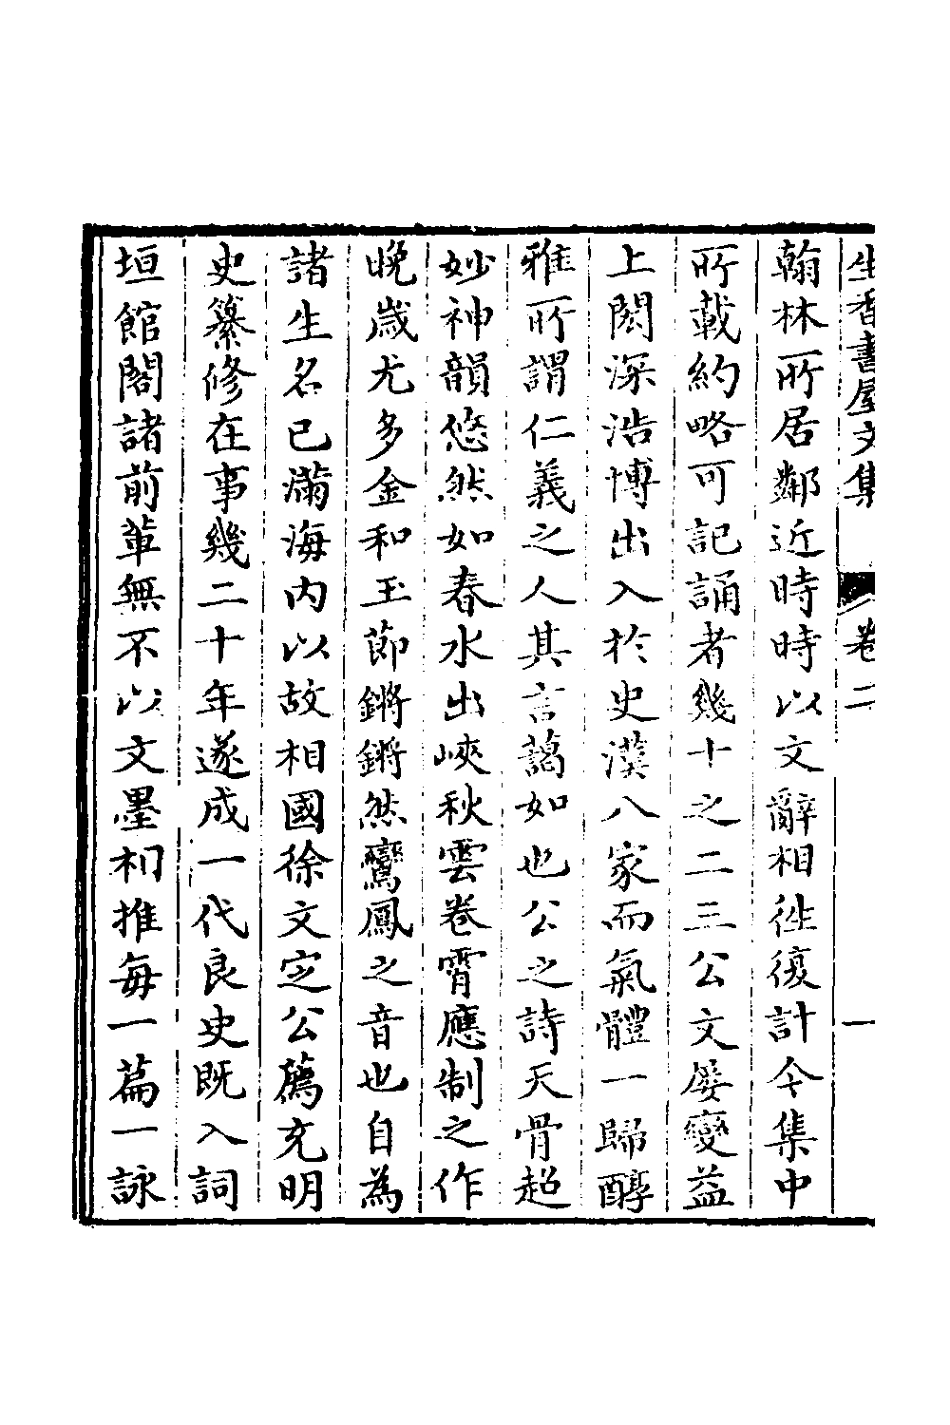 生香書屋文集 卷二 一
翰林所居鄰近時時以文辭相徃復計今集中
所載約略可記誦者幾十之二三公文屡變益
上閎深浩博出入於史漢八家而氣體一歸醇
雅所謂仁義之人其言藹如也公之詩天骨超
妙神韻悠然如春水出峽秋雲卷霄應制之作
晚歲尤多金和玉節鏘鏘然鸞鳳之音也自為
諸生名已滿海内以故相國徐文定公薦充明
史纂修在事幾二十年遂成一代良史既入詞
垣館閣諸前軰無不以文墨相推每一篇一詠